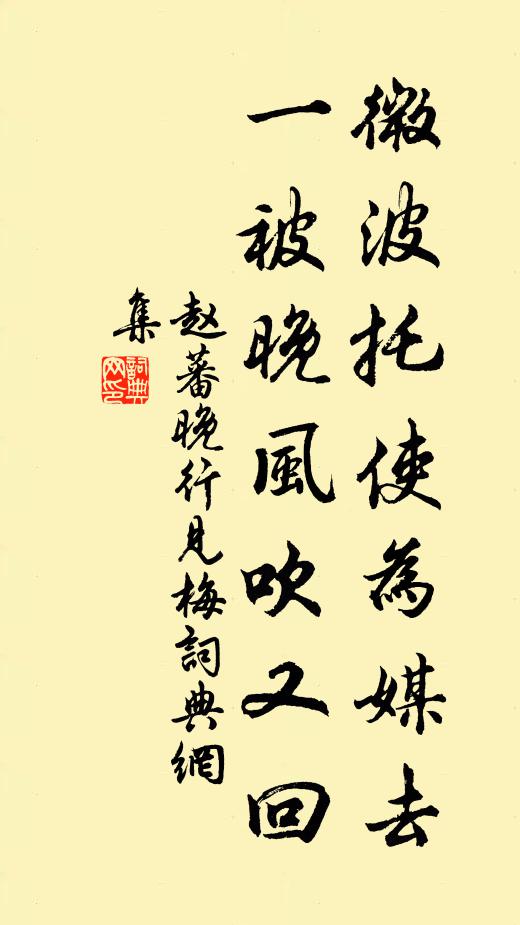 微波托使為媒去
一被晚風吹又回
赵蕃晚行見梅詞典網
集
詞典
网印